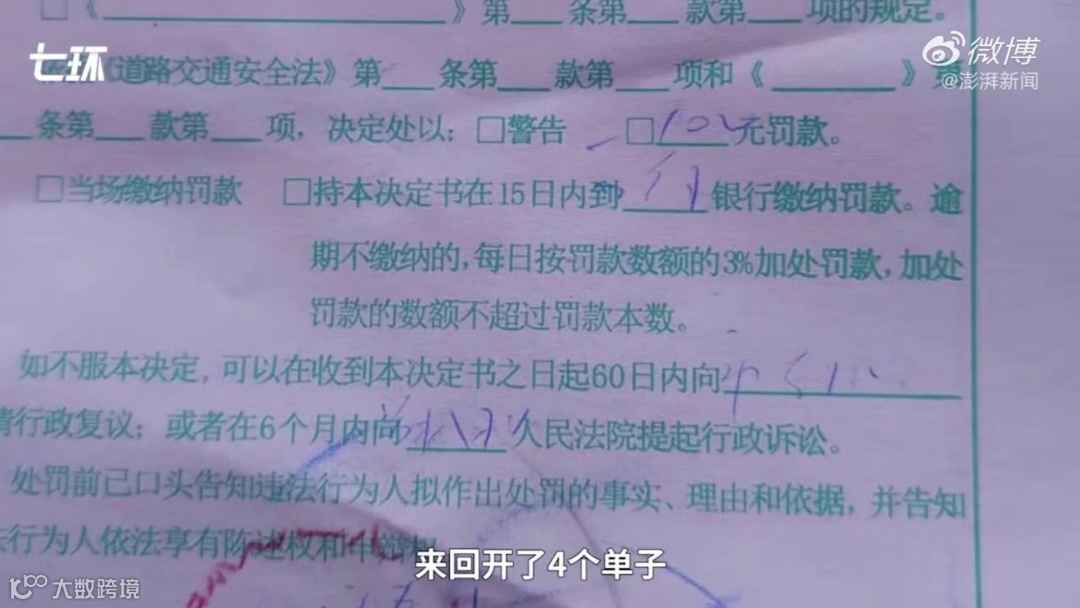 □《 》第 条第 款第 项的规定。
七环
微博
@澎湃新闻
道路交通安全法》第 条第 款第 项和《 》第
条第 款第 项，决定处以：□警告 □ 元罚款。
□当场缴纳罚款 □持本决定书在15日内到 银行缴纳罚款。逾
期不缴纳的，每日按罚款数额的3%加处罚款，加处
罚款的数额不超过罚款本数。
如不服本决定，可以在收到本决定书之日起60日内向
请行政复议；或者在6个月内向 人民法院提起行政诉讼。
处罚前已口头告知违法行为人拟作出处罚的事实、理由和依据，并告知
行为人依法享有陈述权和申辩权
来回开了4个单子
大数跨境